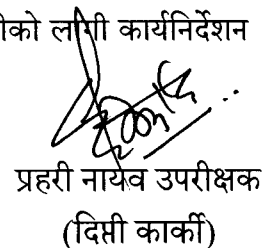 को लागी कार्यनिर्देशन
प्रहरी नायव उपरीक्षक
(दिप्ती कार्की)